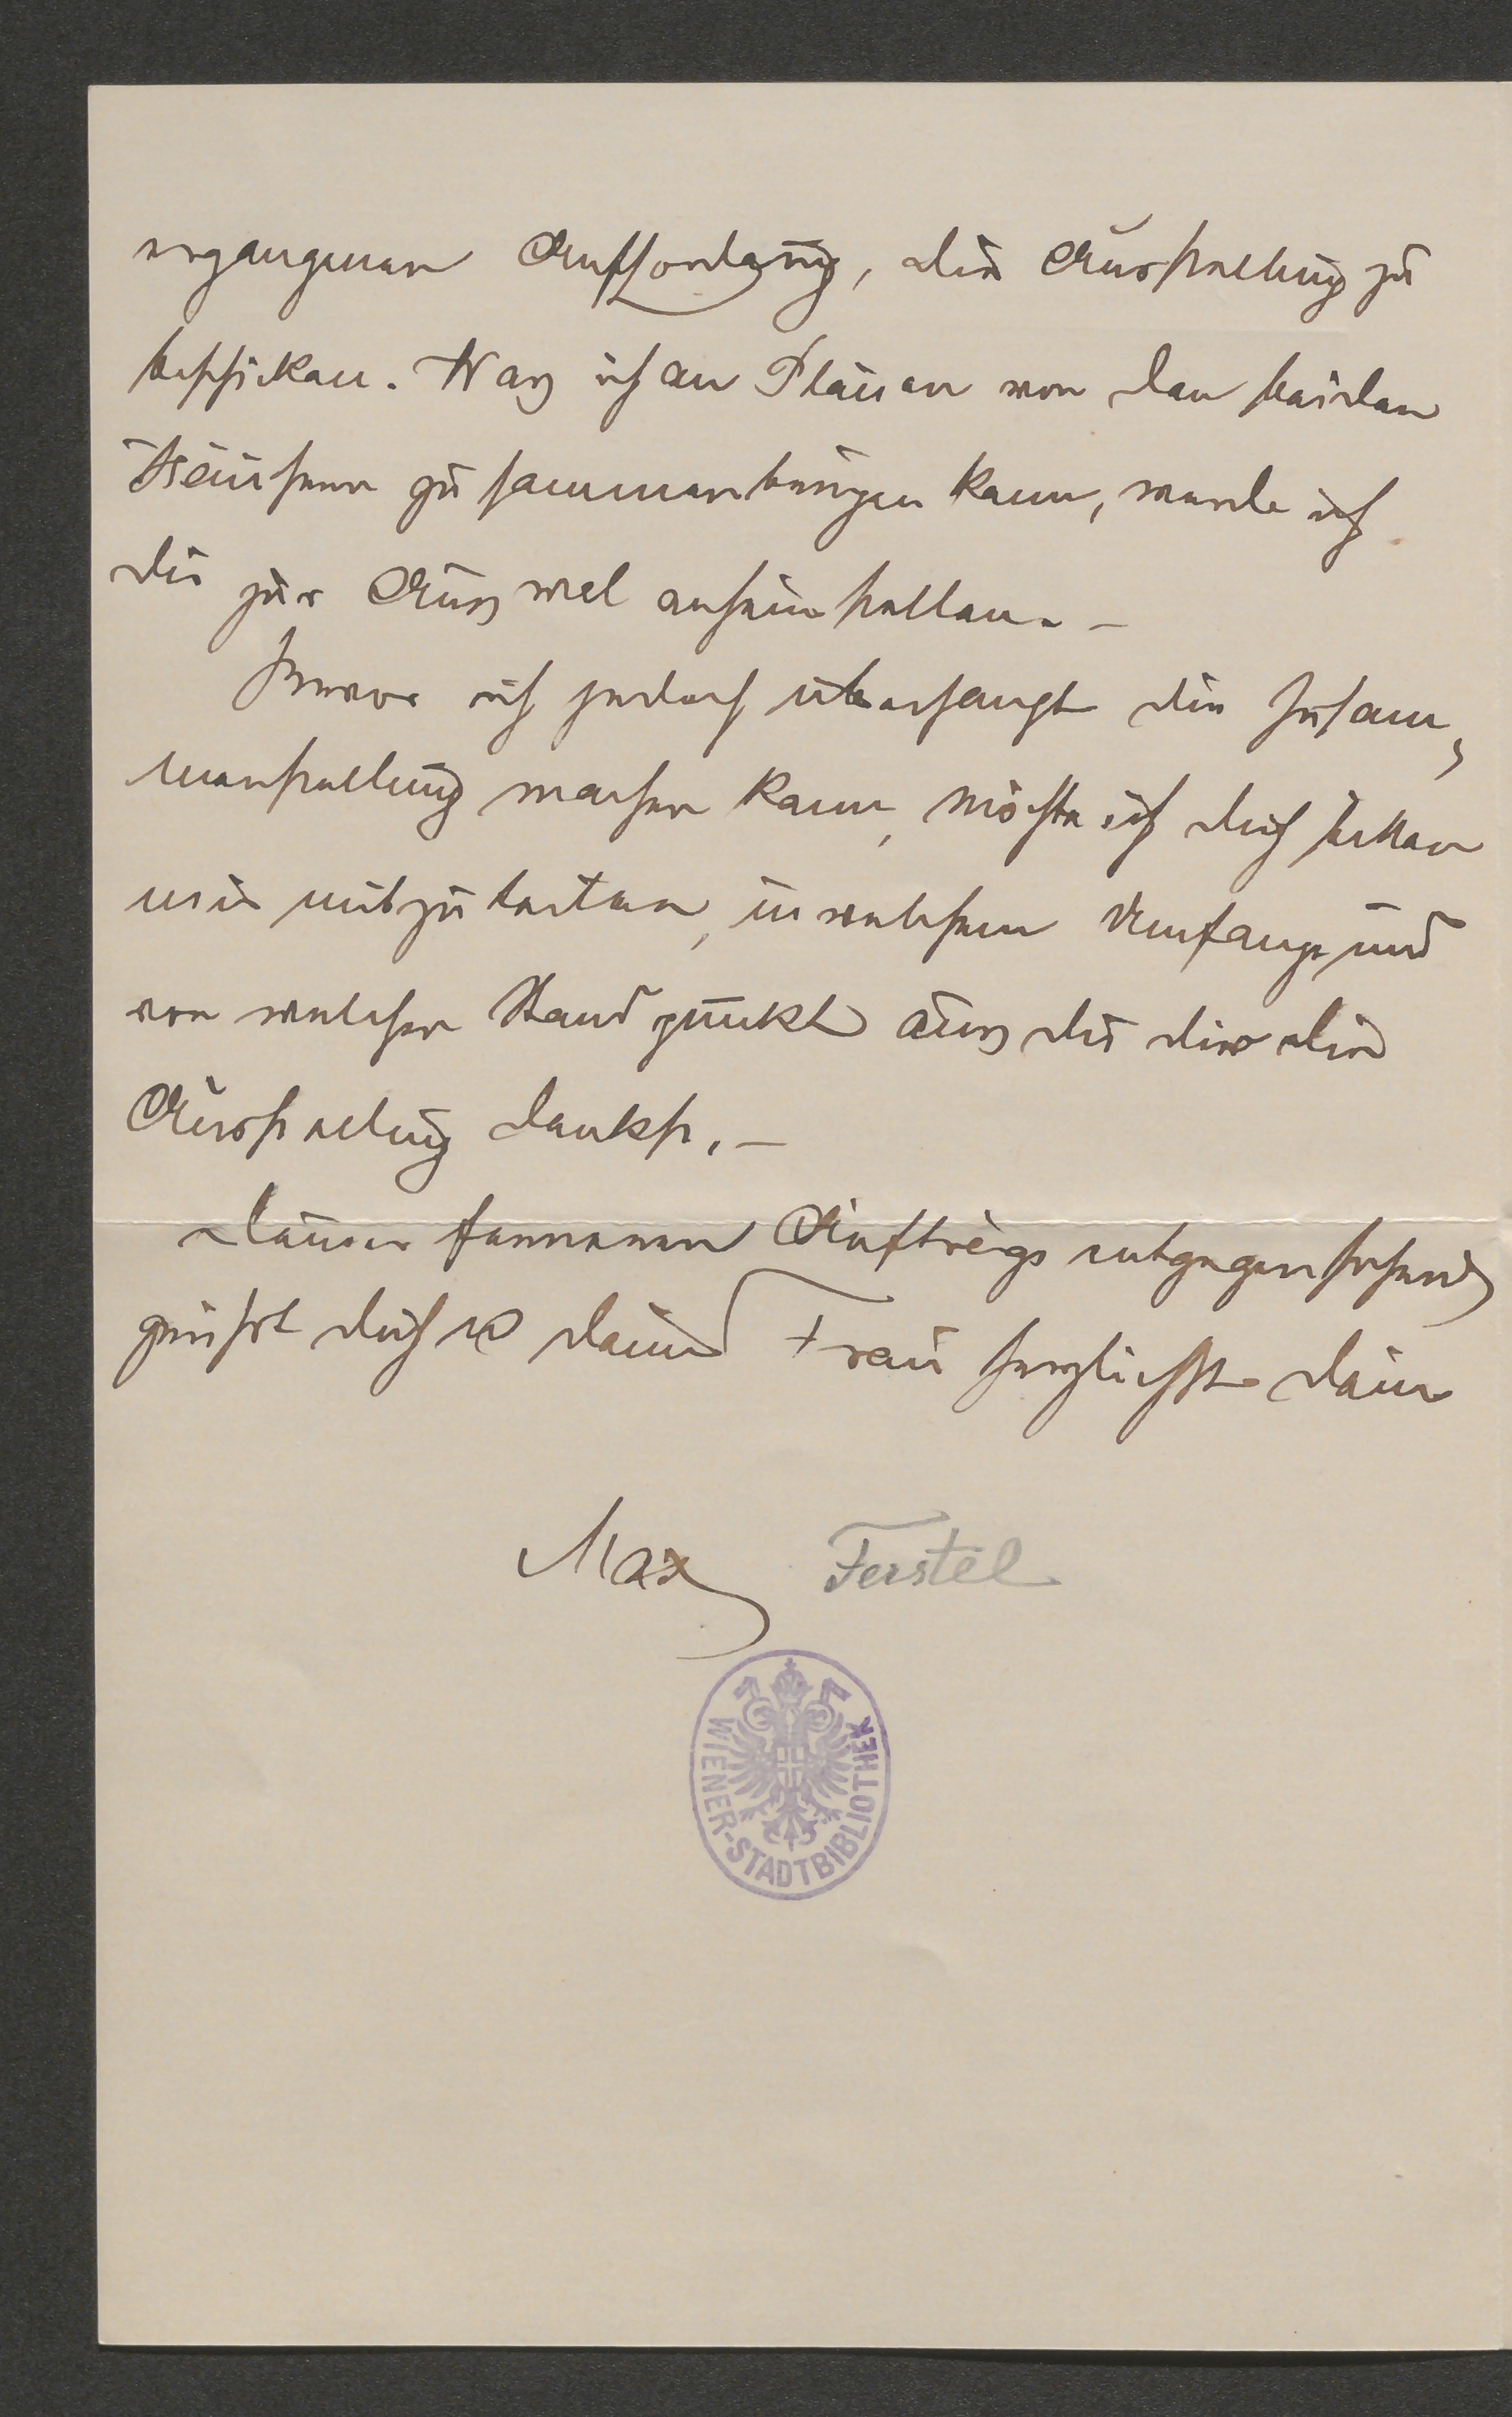 ergangenen Aufforderung, die Ausstellung zu
beschicken. Was ich an Plänen von den beiden
Häusern zusammenbringen kann, werde ich
dir zur Auswal anheimstellen. –
Bevor ich jedoch überhaupt die Zusam-
menstellung machen kann, möchte ich dich bitten
mir mitzuteilen, in welchem Umfange und
von welchem Standpunkt aus du dir die
Ausstellung denkst. –
Deinen ferneren Aufträgen entgegensehend
grüßt dich u deine Frau herzlichst dein
Max Ferstel
WIENER-STADTBIBLIOTHEK